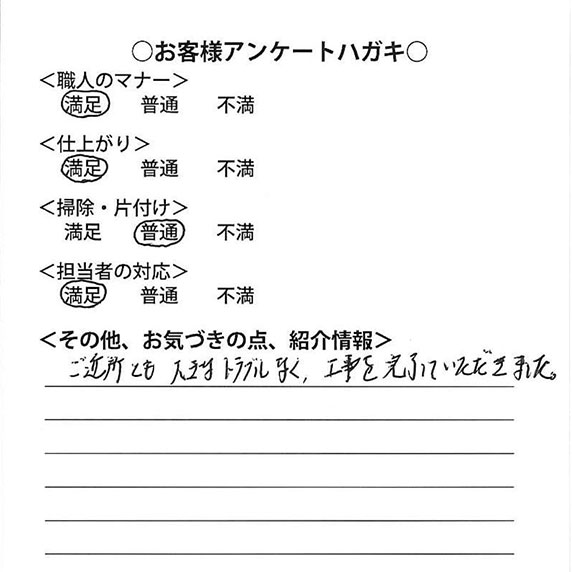 ○お客様アンケートハガキ○
＜職人のマナー＞
満足 普通 不満
＜仕上がり＞
満足 普通 不満
＜掃除・片付け＞
満足 普通 不満
＜担当者の対応＞
満足 普通 不満
＜その他、お気づきの点、紹介情報＞
ご近所とも大きなトラブルなく、工事を完了していただきました。